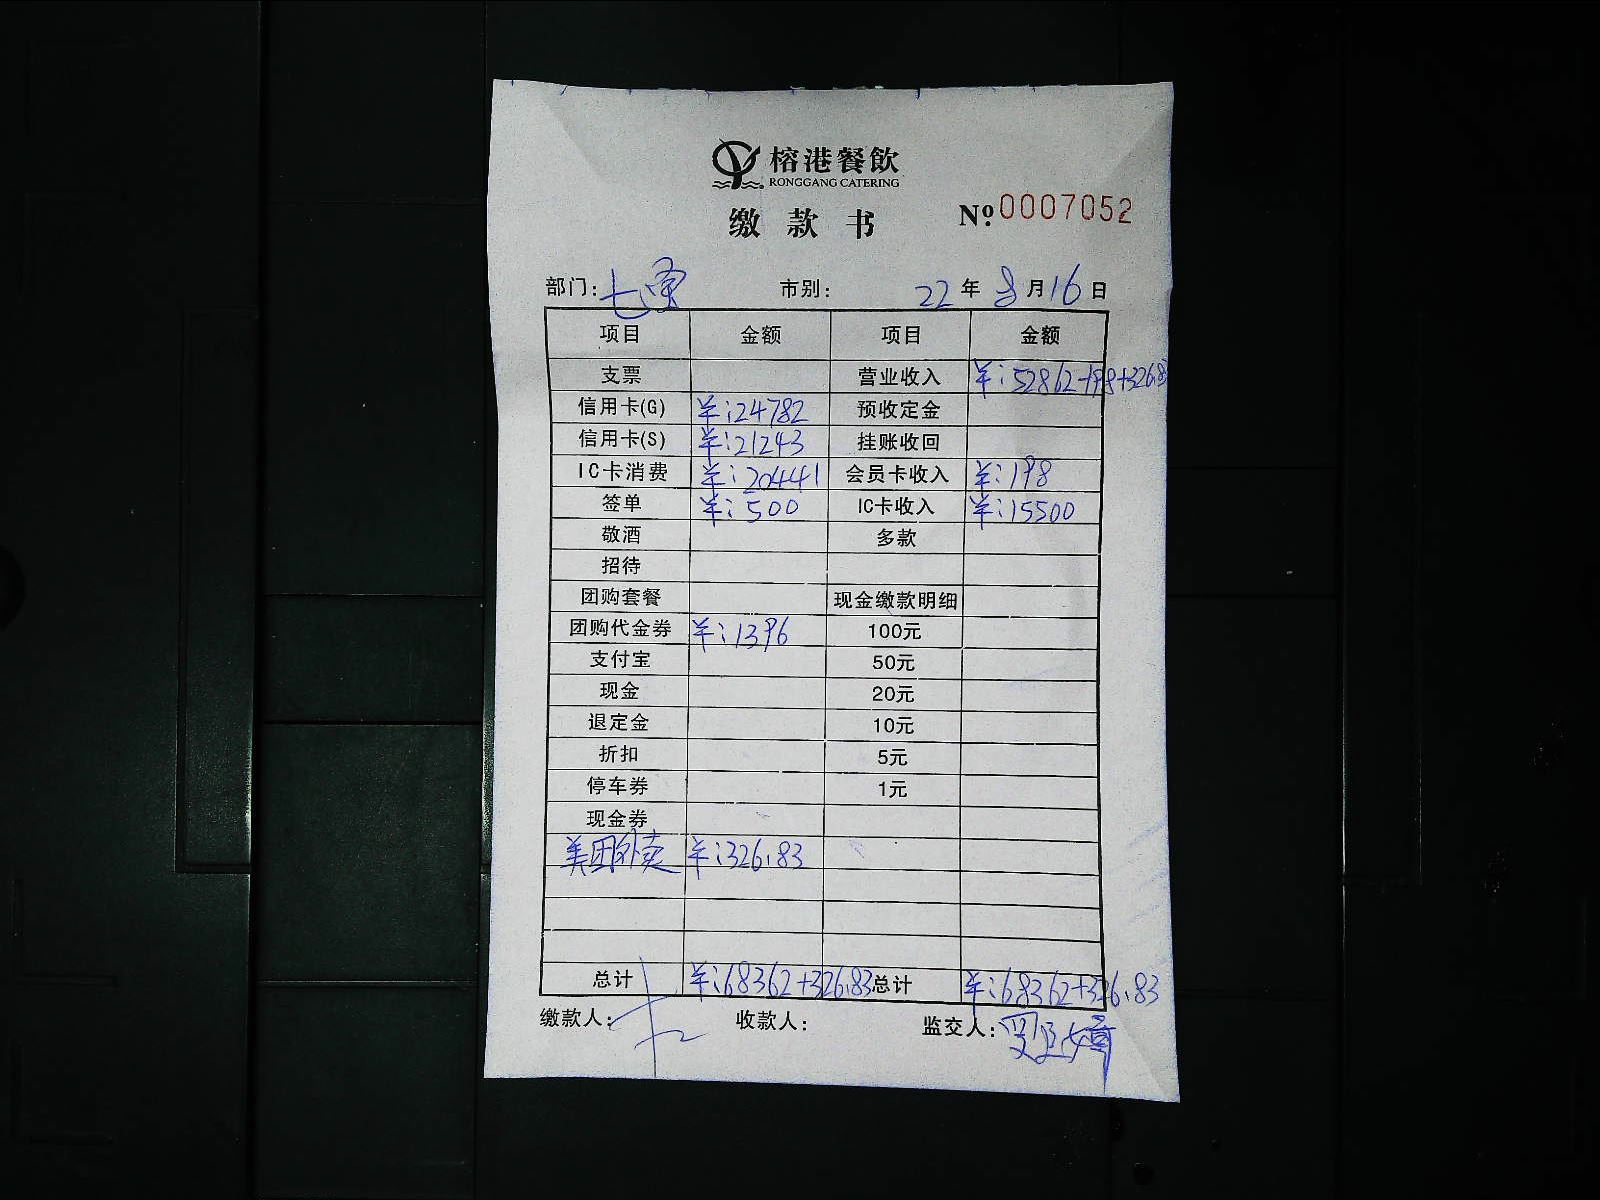 榕港餐飲
RONGGANG CATERING
缴款书 № 0007052
部门: 七 市别: 22年8月16日
项目 金额 项目 金额
支票 营业收入 ¥:52862-198+326.83
信用卡(G) ¥:24782 预收定金
信用卡(S) ¥:21243 挂账收回
IC卡消费 ¥:20441 会员卡收入 ¥:198
签单 ¥:500 IC卡收入 ¥:15500
敬酒 多款
招待
团购套餐 现金缴款明细
团购代金券 ¥:1396 100元
支付宝 50元
现金 20元
退定金 10元
折扣 5元
停车券 1元
现金券
美团外卖 ¥:326.83
总计 ¥:68362+326.83 总计 ¥:68362+326.83
缴款人: 收款人: 监交人: